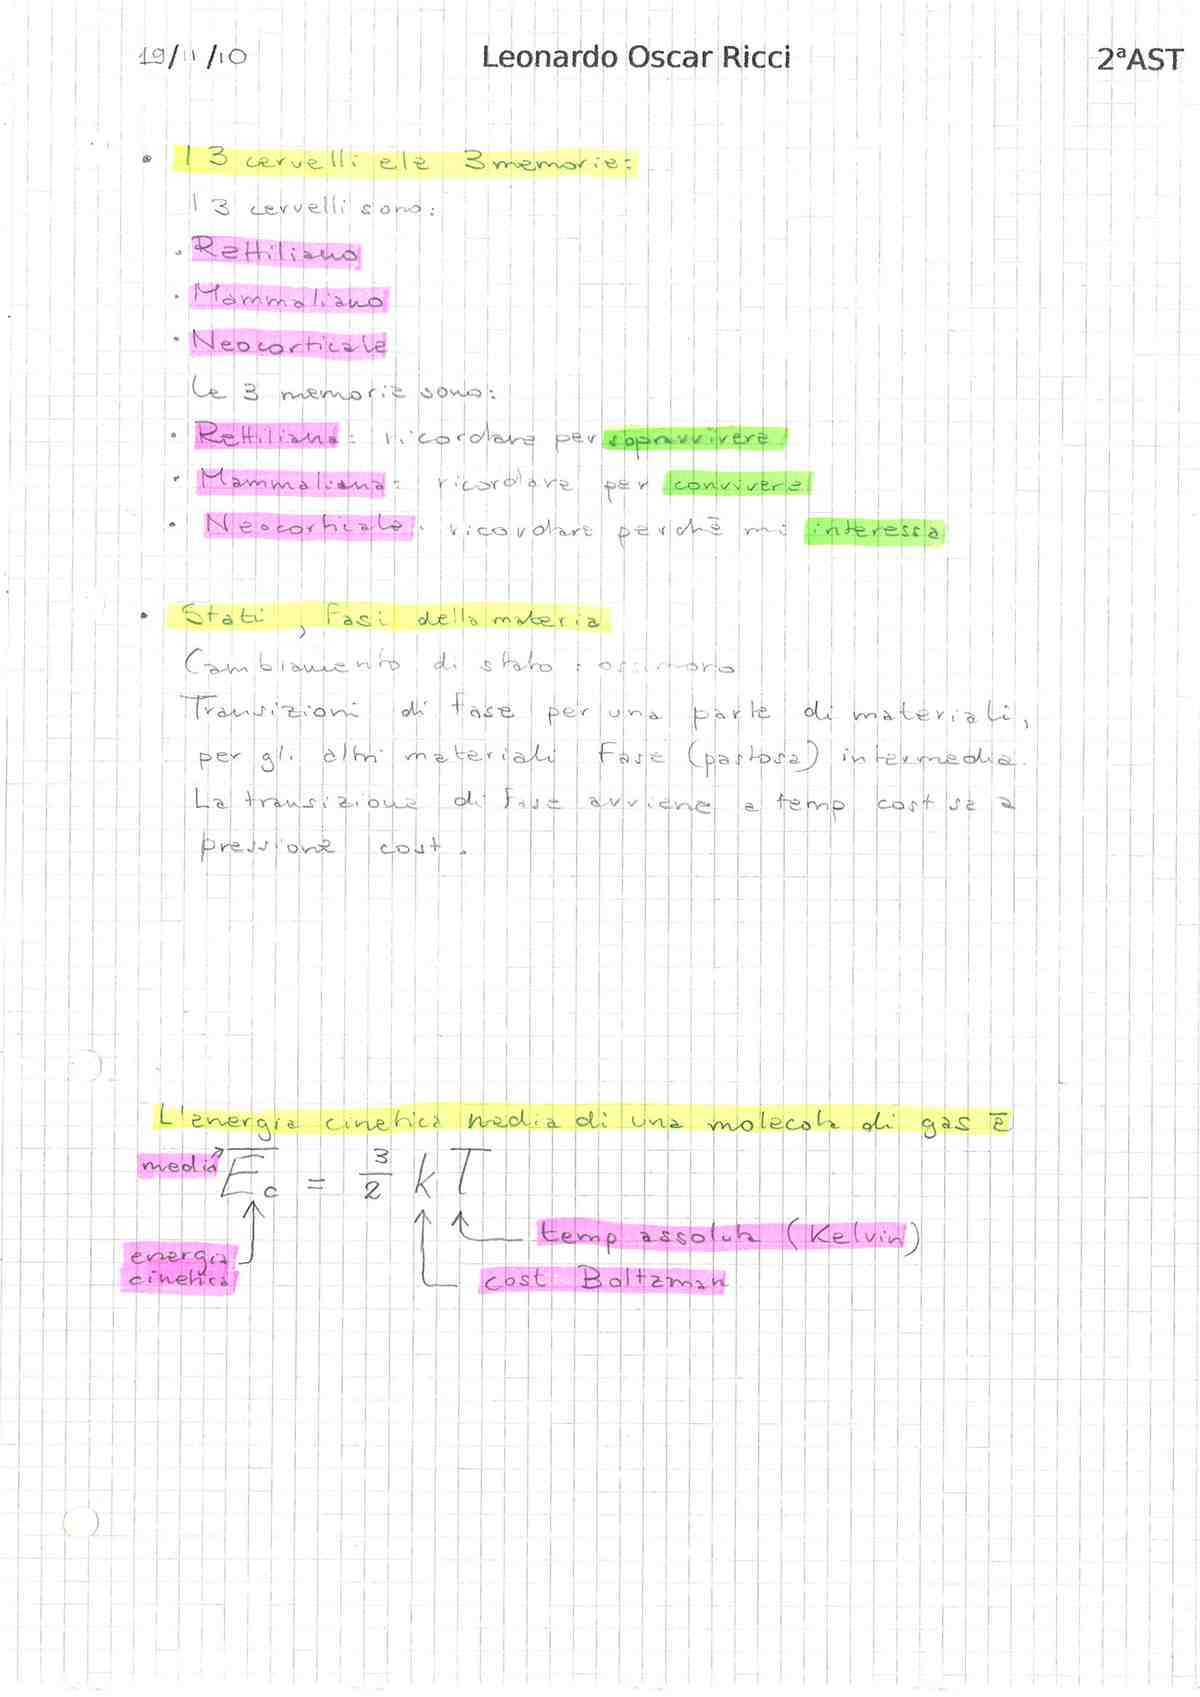 19/11/10 Leonardo Oscar Ricci 2ªAST
• I 3 cervelli e le 3 memorie:
I 3 cervelli sono:
• Rettiliano
• Mammaliano
• Neocorticale
Le 3 memorie sono:
• Rettiliana: ricordare per sopravvivere
• Mammaliana: ricordare per convivere
• Neocorticale: ricordare perchè mi interessa
• Stati, Fasi della materia
Cambiamento di stato: ossimoro
Transizioni di fase per una parte di materiali,
per gli altri materiali Fase (pastosa) intermedia.
La transizione di fase avviene a temp cost se a
pressione cost.
L'energia cinetica media di una molecola di gas è
media Ec = 3/2 kT
temp assoluta (Kelvin)
energia
cinetica
cost Boltzman